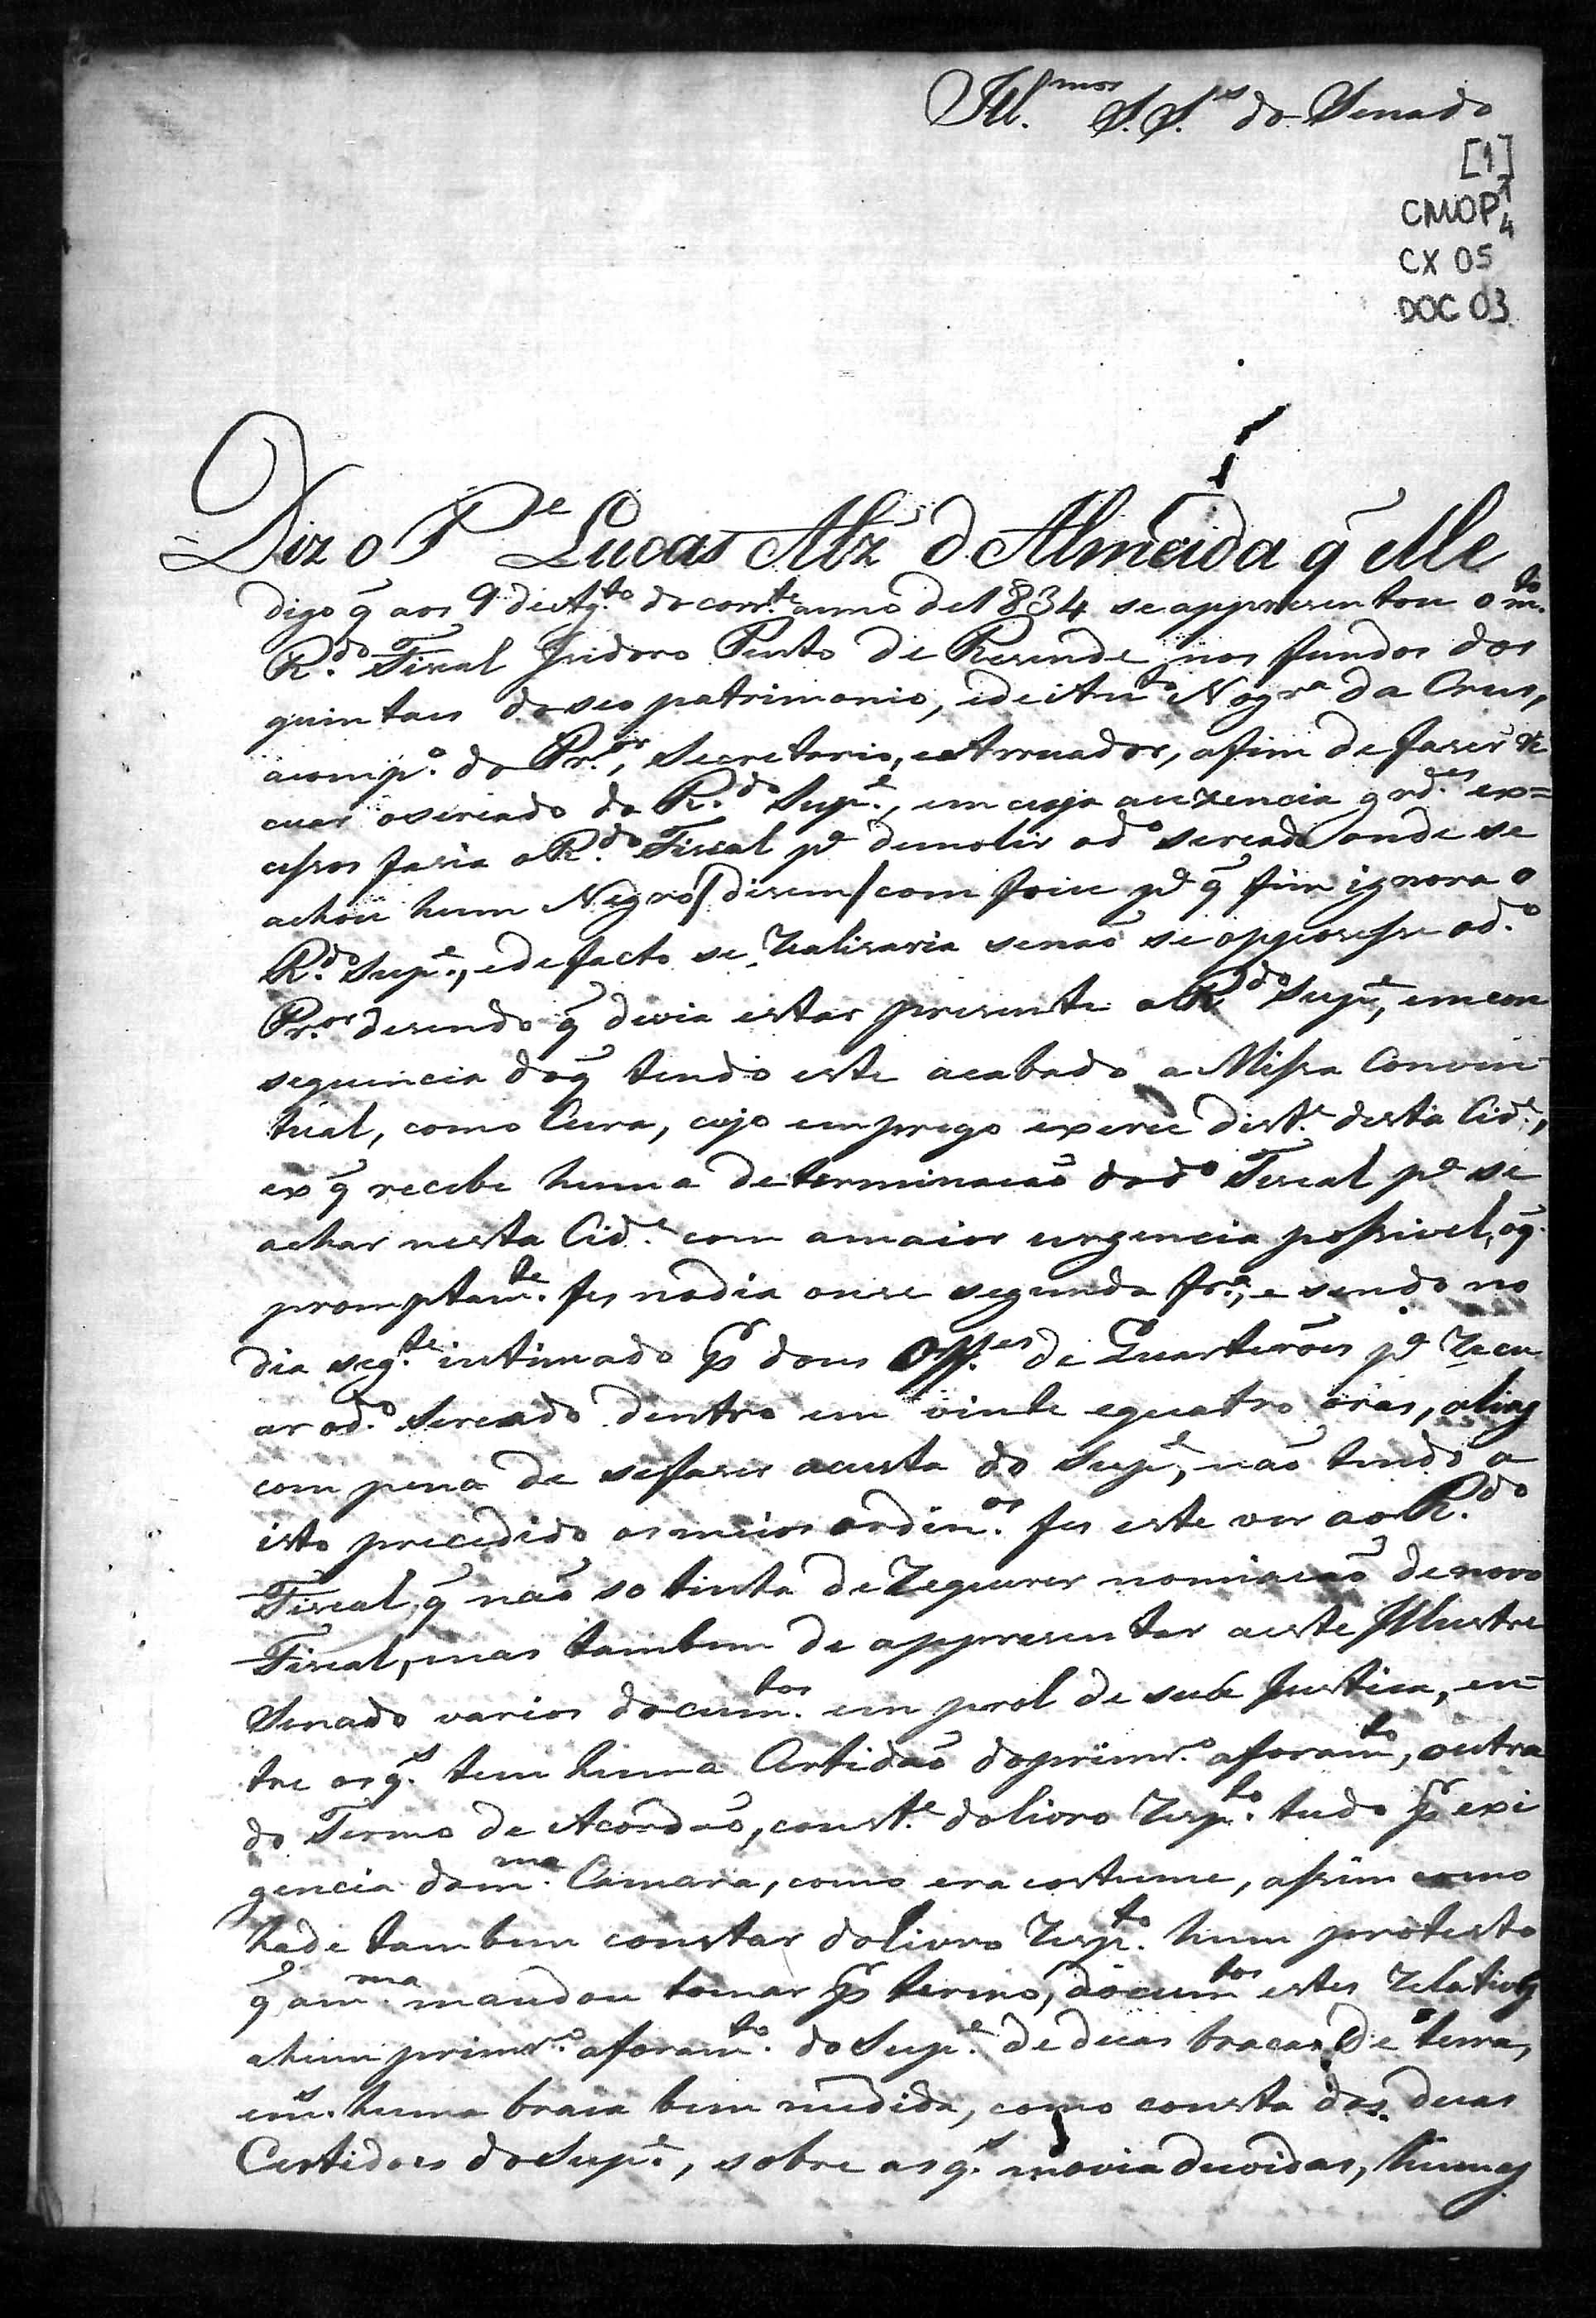 Ill.mos S.S.es do Senado
[1]
CMOP 1/4
CX 05
DOC 03
Diz o Pe Lucas Alz' d Almeida q̃ Me
digo q̃ aos 9 de Ag.to do corr.te anno de 1834 se appresentou o m.to
R.do Fiscal Izidoro Pinto de Resende, nos fundos dos
quintaes do seo patrimonio, e de Ant.o Nogr.a da Crus,
acomp.o do Pr.or, Secretario, e Arruador, afim de faser re
cuar o sercado do R.do Sup.e, em cuja auzencia grd.es ex=
cessos faria o R.do Fiscal p.a demolir o d.o sercado onde se
achou hum Negro / disem / com foice p.a q̃ fim ignora o
R.do Sup.e, e de facto se realisaria senaõ se oppozesse o d.o
Pr.or desendo q̃ devia estar presente o R.do Sup.e, em con
sequencia do q̃ tendo este acabado a Missa Conven
tual, como Cura, cujo emprego exerce dist.e desta Cid.e,
ex q̃ recebe huma determinacaõ do d.o Fiscal p.a se
achar nesta Cid.e com a maior urgencia possivel, o q̃
promptam.te fes no dia onse segunda fr.a, e sendo no
dia seg.te intimado p̃r dous Off.es de Quarteroẽs p.a recu
ar o d.o Sercado dentro em vinte e quatro oras, alias
com pena de se faser acusta do Sup.e, naõ tendo a
isto precedido os meios ordin.os fes este ver ao R.do
Fiscal, q̃ naõ so tinha de requerer nomiacaõ de novo
Fiscal, mas tambem de appresentar a este Illustre
Senado varios docum.tos em prol de sua Justica, en=
tre os q.s tem huma Certidaõ do primr.o aforam.to, outra
do Termo de Acordaõ, const.e do livro resp.to tudo p̃r exi
gencia da m.ma Camara, como era costume, assim como
hade tambem constar do livro resp.to hum protesto
q̃ a m.ma mandou tomar p̃r termo, docum.tos estes relativos
a hum primr.o aforam.to do Sup.e de duas bracas de terra,
huma braca bem medida, como consta das duas
Certidoes do Sup.e, sobre as q.s movia duvidas, humas